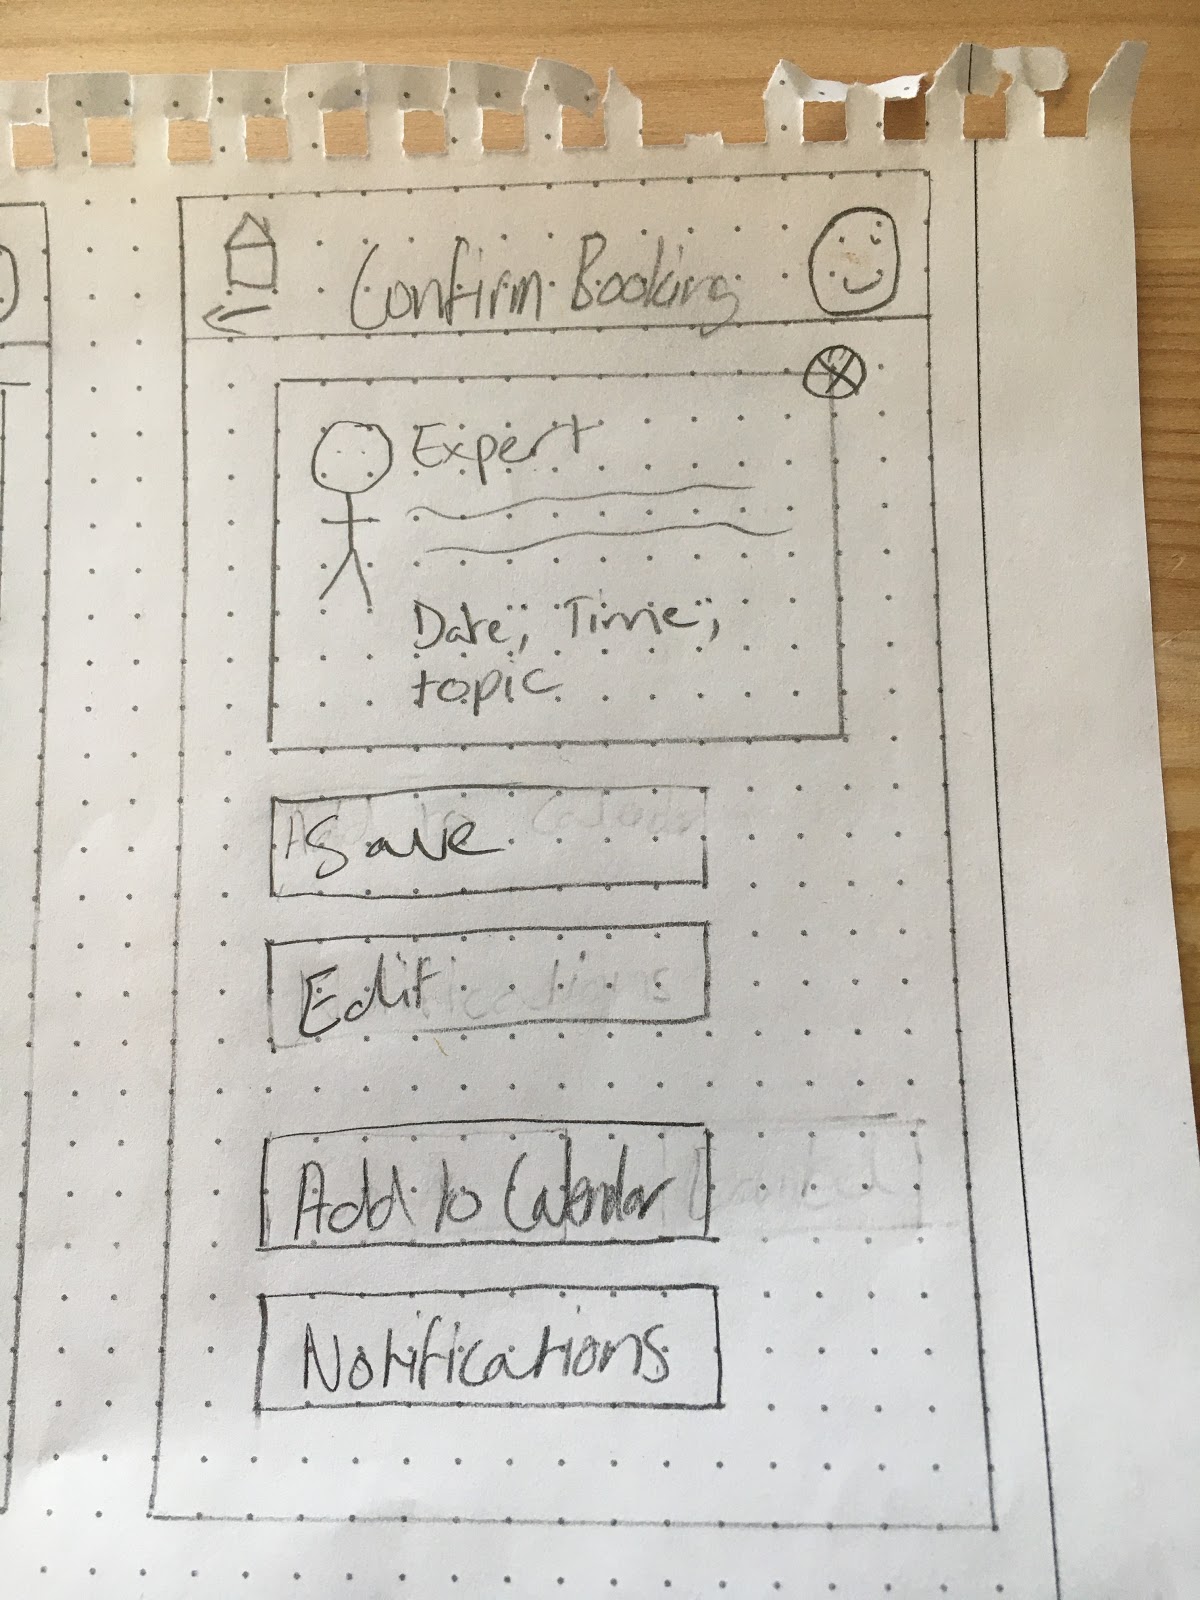 Confirm Booking
Expert
Date, Time,
topic
Save
Edit
Add to Calendar
Notifications